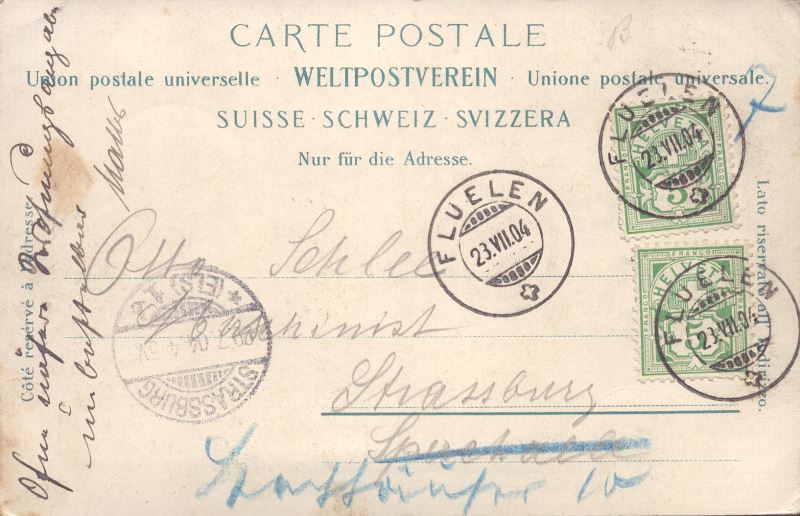 CARTE POSTALE
Union postale universelle · WELTPOSTVEREIN · Unione postale universale.
SUISSE · SCHWEIZ · SVIZZERA
Nur für die Adresse.
Côté réservé à l'adresse.
Lato riservato all'indirizzo.
FLUELEN
23.VII.04
FLUELEN
23.VII.04
FLUELEN
23.VII.04
HELVETIA
5
FRANCO
HELVETIA
5
Otto Schlee
Maschinist
Strassburg
STRASSBURG
(ELS)
10
Ohne nähere Wohnungsangabe
unbestellbar